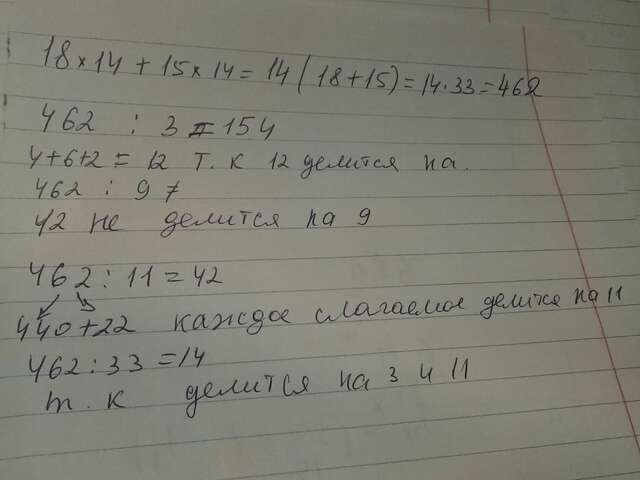 18×14 + 15×14 = 14 (18+15) = 14·33 = 462
462 : 3 = 154
4+6+2 = 12 т. к 12 делится на.
462 : 9 ≠
12 не делится на 9
462 : 11 = 42
440+22 каждое слагаемое делится на 11
462 : 33 = 14
т. к делится на 3 и 11